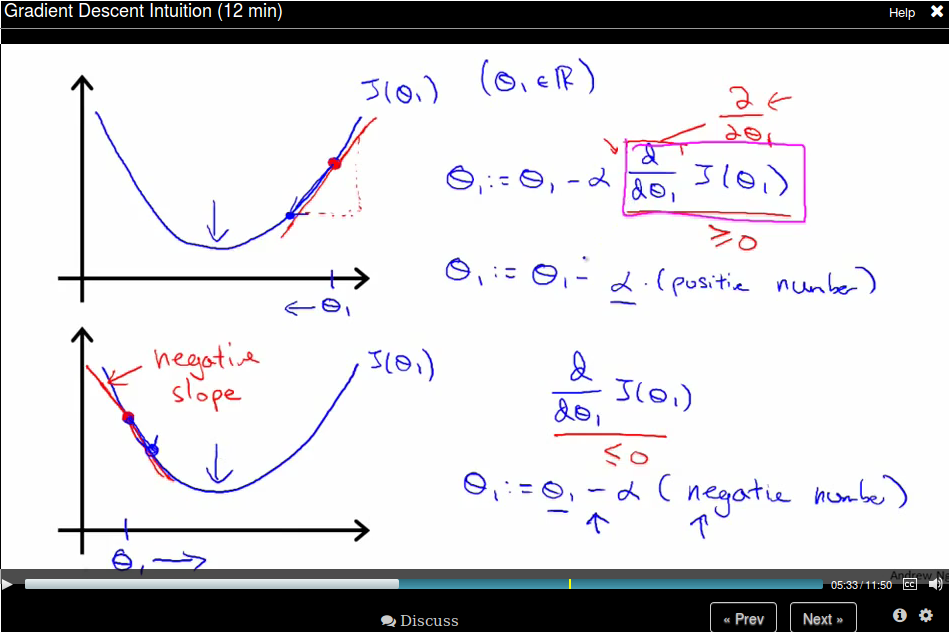 Gradient Descent Intuition (12 min)
Help
J(θ₁) (θ₁ ∈ ℝ)
∂/∂θ₁
θ₁ := θ₁ - α d/dθ₁ J(θ₁)
≥ 0
θ₁ := θ₁ - α · (positive number)
θ₁
negative
slope
J(θ₁)
d/dθ₁ J(θ₁)
≤ 0
θ₁ := θ₁ - α (negative number)
θ₁
05:33 / 11:50
CC
Discuss
« Prev
Next »